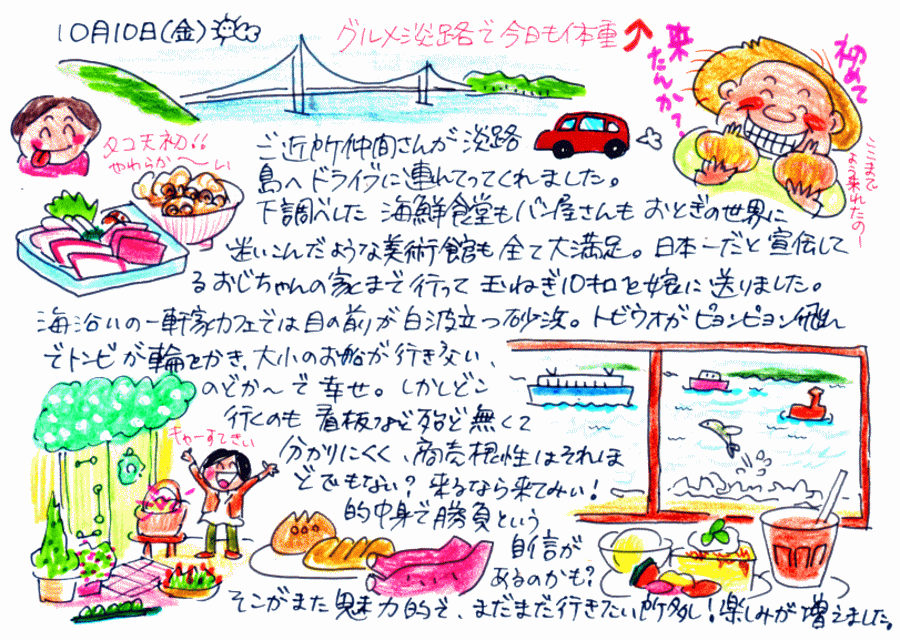 10月10日(金)
グルメ淡路で今日も体重↑
初めて
来たんか?
ここまで
よう来れたのー
タコ天初!!
やわらか〜い
ご近所仲間さんが淡路
島へドライブに連れてってくれました。
下調べした 海鮮食堂もパン屋さんも おとぎの世界に
迷いこんだような美術館も 全て大満足。日本一だと宣伝して
るおじちゃんの家まで行って 玉ねぎ10キロを嫁に送りました。
海沿いの一軒家カフェでは目の前が白波立つ砂浜。トビウオがピョンピョン飛ん
でトンビが輪をかき、大小のお船が行きかい、
のどか〜で幸せ。しかしどこ
行くのも 看板など殆ど無くて
分かりにくく、商売根性はそれほ
どでもない? 来るなら来てみぃ!
的中身で勝負という
自信が
あるのかも?
そこがまた魅力的で、まだまだ行きたい所多し!楽しみが増えました。
きゃーすてきぃ